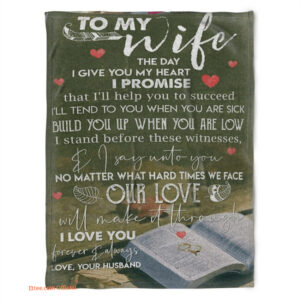 TO MY
wife
THE DAY
I GIVE YOU MY HEART
I PROMISE
that I'll help you to succeed
I'LL TEND TO YOU WHEN YOU ARE SICK
BUILD YOU UP WHEN YOU ARE LOW
I stand before these witnesses,
& I say unto you
NO MATTER WHAT HARD TIMES WE FACE
OUR LOVE
will make it through
I LOVE YOU
forever & always
LOVE, YOUR HUSBAND